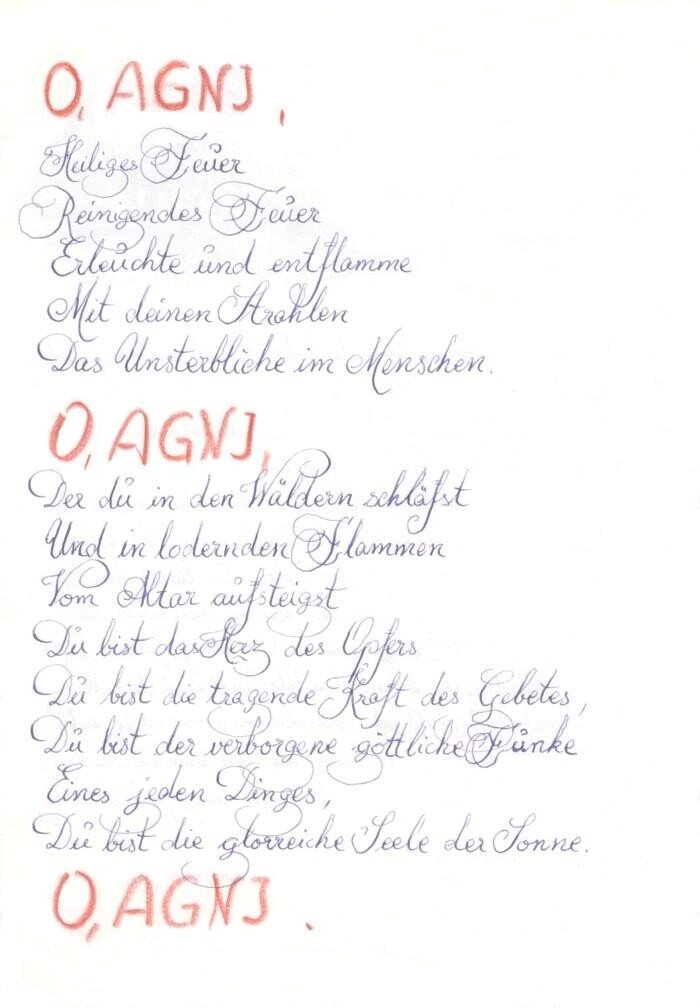 O, AGNJ,
Heiliges Feuer
Reinigendes Feuer
Erleuchte und entflamme
Mit deinen Strahlen
Das Unsterbliche im Menschen.
O, AGNJ,
Der du in den Wäldern schläfst
Und in lodernden Flammen
Vom Altar aufsteigst
Du bist das Herz des Opfers
Du bist die tragende Kraft des Gebetes,
Du bist der verborgene göttliche Funke
Eines jeden Dinges,
Du bist die glorreiche Seele der Sonne.
O, AGNJ.